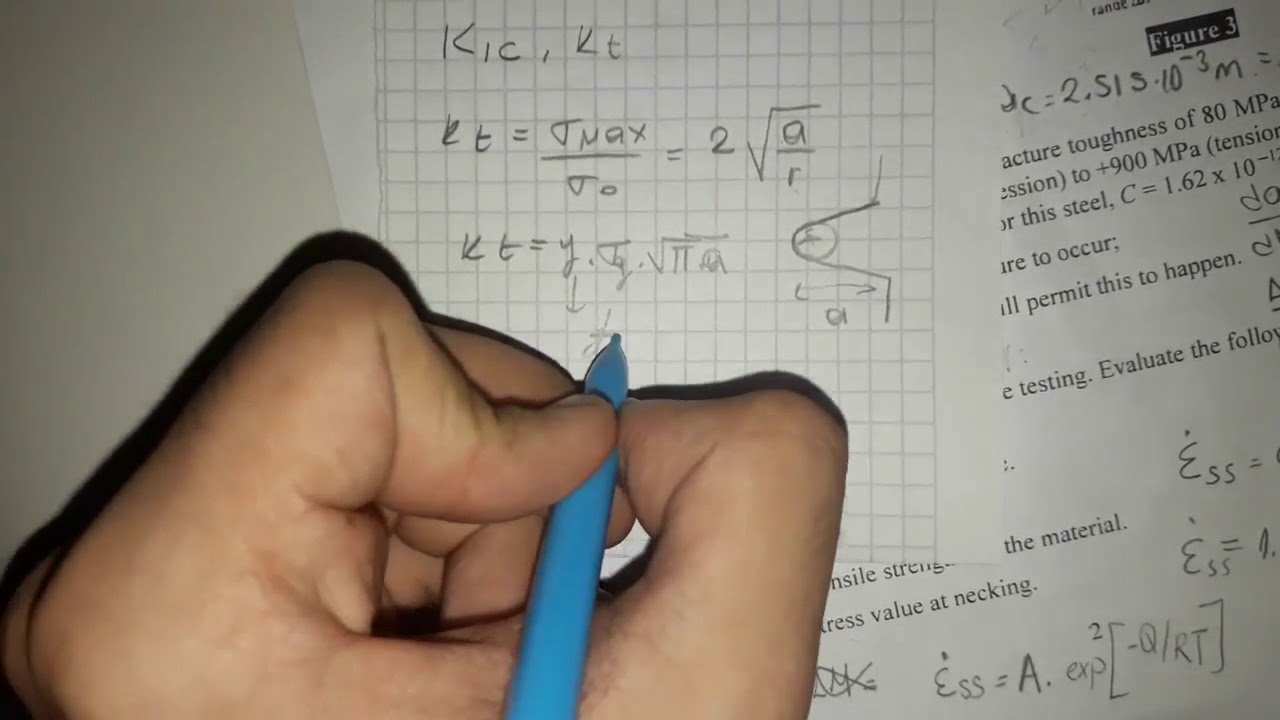 K1C , Kt
Kt = σMax / σ0 = 2 √(a/r)
Kt = y . σy . √πa
↓
a
range
Figure 3
= 2.515.10⁻³m =
acture toughness of 80 MPa
ession) to +900 MPa (tension
or this steel, C = 1.62 x 10⁻¹²
ire to occur;
ill permit this to happen.
e testing. Evaluate the follow
ε̇ss =
the material.
ε̇ss = 1.
nsile streng
tress value at necking.
ε̇ss = A. exp² [-Q/RT]